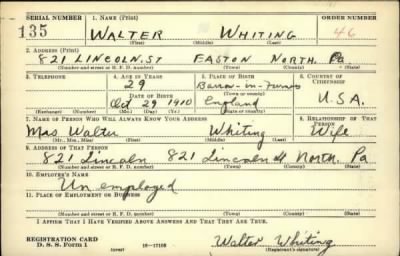 SERIAL NUMBER 1. NAME (Print) ORDER NUMBER
135 WALTER WHITING 46
(First) (Middle) (Last)
2. ADDRESS (Print)
821 LINCOLN. ST EASTON NORTH. Pa
(Number and street or R. F. D. number) (Town) (County) (State)
3. TELEPHONE 4. AGE IN YEARS 5. PLACE OF BIRTH 6. COUNTRY OF CITIZENSHIP
29 Barrow-in-Furness
DATE OF BIRTH (Town or county)
Oct 29 1910 England U.S.A.
(Exchange) (Number) (Mo.) (Day) (Yr.) (State or country)
7. NAME OF PERSON WHO WILL ALWAYS KNOW YOUR ADDRESS 8. RELATIONSHIP OF THAT PERSON
Mrs Walter Whiting Wife
(Mr., Mrs., Miss) (First) (Middle) (Last)
9. ADDRESS OF THAT PERSON
821 Lincoln 821 Lincoln St North. Pa
(Number and street or R. F. D. number) (Town) (County) (State)
10. EMPLOYER'S NAME
Unemployed
11. PLACE OF EMPLOYMENT OR BUSINESS
(Number and street or R. F. D. number) (Town) (County) (State)
I AFFIRM THAT I HAVE VERIFIED ABOVE ANSWERS AND THAT THEY ARE TRUE.
REGISTRATION CARD Walter Whiting
D. S. S. Form 1 (over) 16—17105 (Registrant's signature)